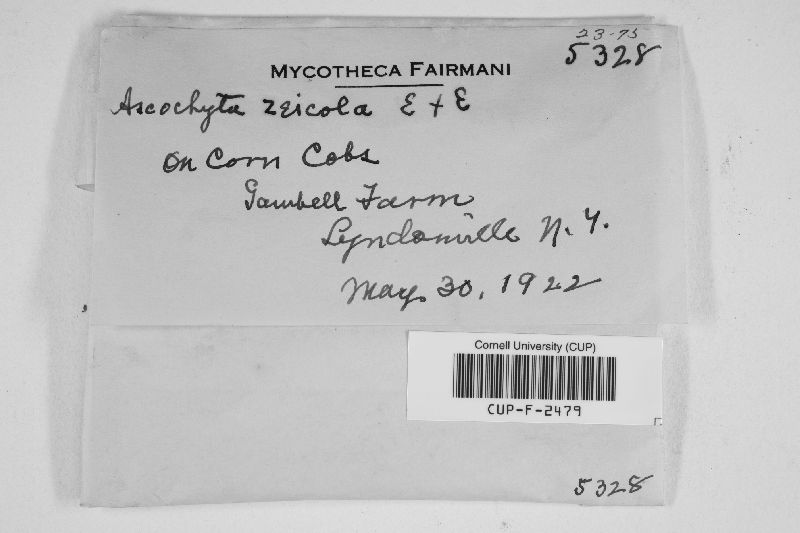 23-75
5328
MYCOTHECA FAIRMANI
Ascochyta zeicola E & E
on Corn Cobs
Gambell Farm
Lyndonville N. Y.
May 30, 1922
Cornell University (CUP)
CUP-F-2479
5328